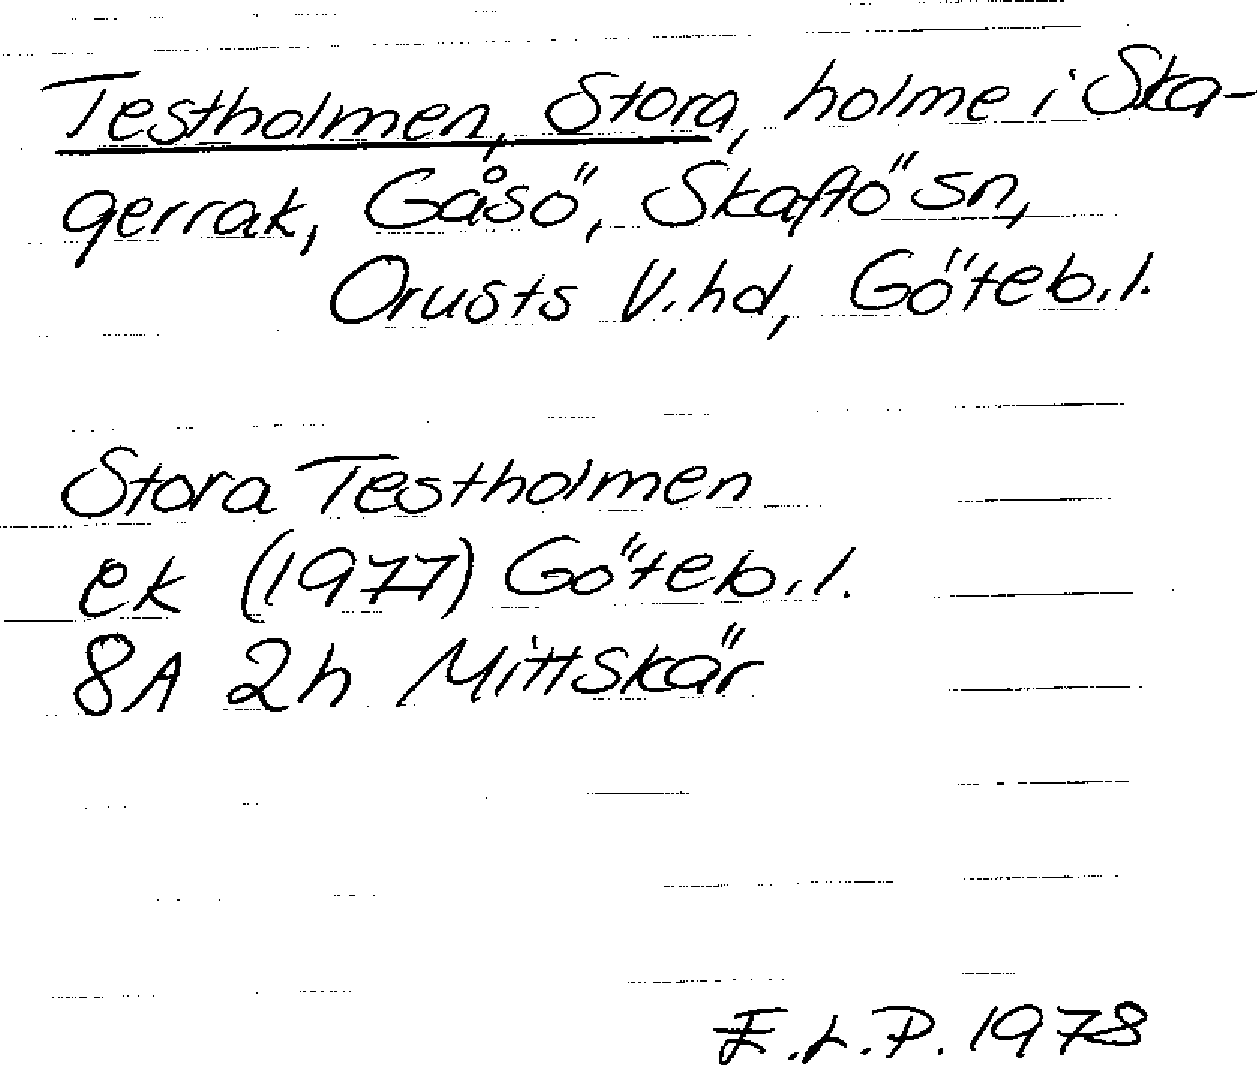 Testholmen, Stora, holme i Ska-
gerrak, Gåsö, Skaftö sn,
Orusts V. hd, Göteb. l.
Stora Testholmen
ek (1977) Göteb. l.
8A 2h Mittskär
E.L.P. 1978